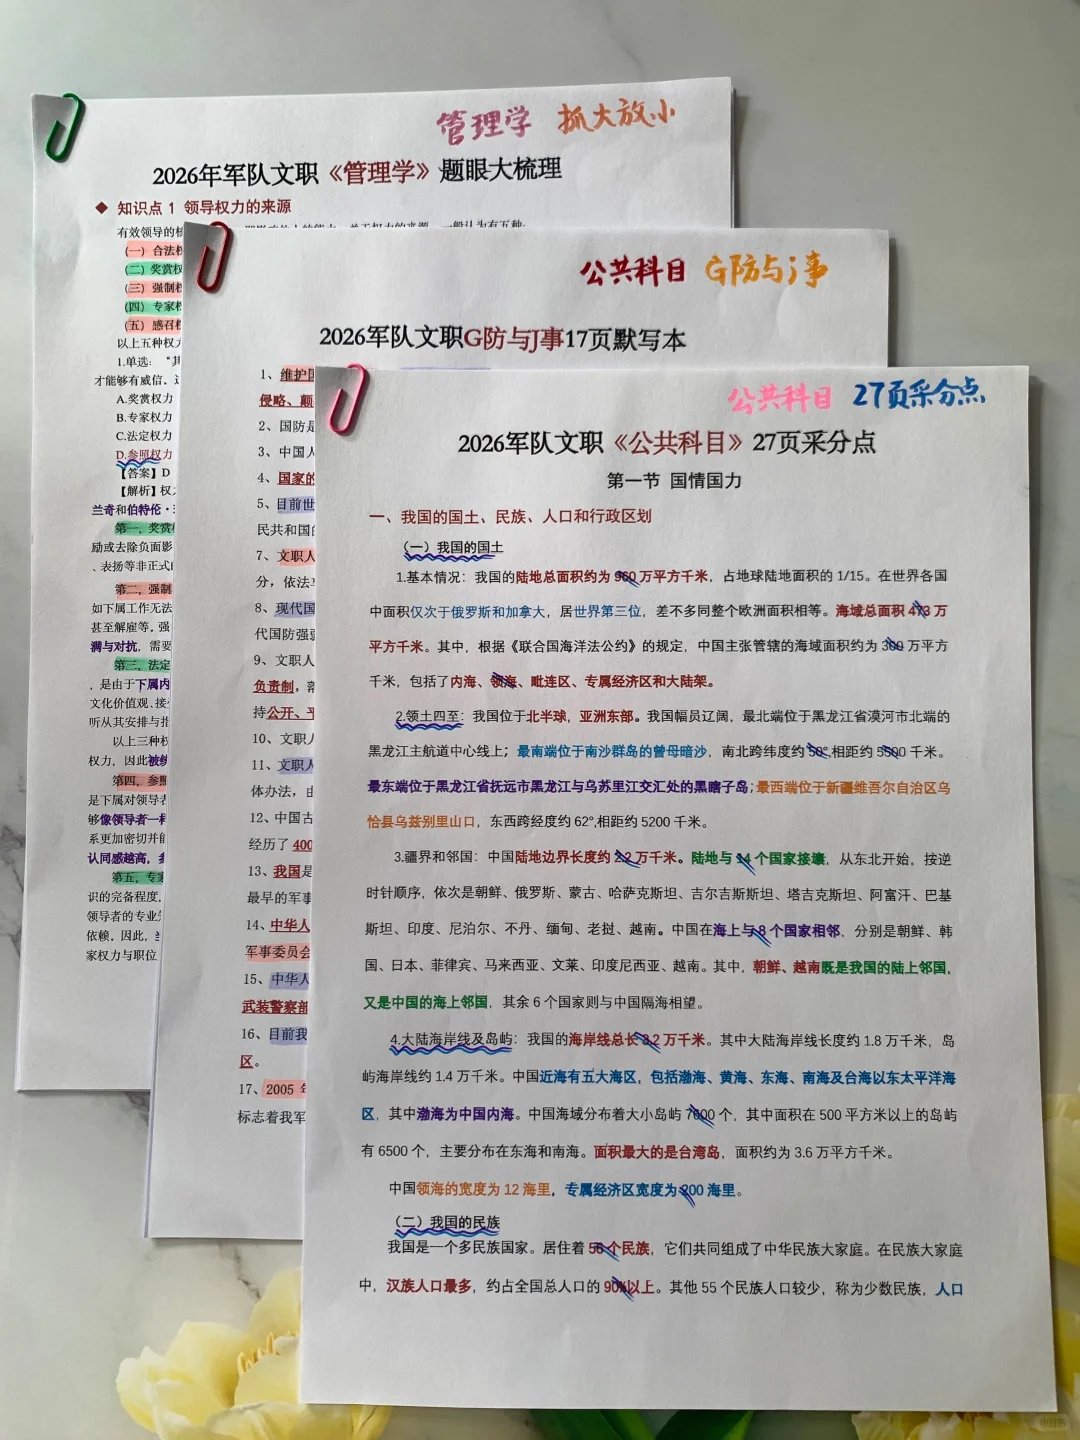 管理学 抓大放小
2026年军队文职《管理学》题眼大梳理
◆ 知识点 1 领导权力的来源
有效领导的
(一) 合法
(二) 奖赏
(三) 强制
(四) 专家
(五) 感召
以上五种权
1.单选: “
才能够有威信,
A.奖赏权力
B.专家权力
C.法定权力
D.参照权力
【答案】D
【解析】权
兰奇和伯特伦·
第一, 奖赏
励或去除负面影
、表扬等非正式
第二, 强制
如下属工作无法
甚至解雇等。强
满与对抗, 需要
第三, 法定
, 是由于下属内
文化价值观、接
听从其安排与指
以上三种权
权力, 因此被
第四, 参照
是下属对领导者
够像领导者一样
系更加密切并
认同感越高,
第五, 专家
识的完备程度,
领导者的专业
依赖, 因此,
家权力与职位
公共科目 G防与j事
2026军队文职G防与J事17页默写本
1、维护国
侵略、颠
2、国防是
3、中国人
4、国家的
5、目前世
民共和国
7、文职人
分, 依法
8、现代国
代国防强
9、文职人
负责制,
持公开、平
10、文职人
11、文职人
体办法, 由
12、中国古
经历了 400
13、我国是
最早的军事
14、中华人
军事委员会
15、中华人
武装警察部
16、目前我
区。
17、2005 年
标志着我军
公共科目 27页采分点
2026军队文职《公共科目》27页采分点
第一节 国情国力
一、我国的国土、民族、人口和行政区划
(一) 我国的国土
1.基本情况: 我国的陆地总面积约为 960 万平方千米, 占地球陆地面积的 1/15。在世界各国
中面积仅次于俄罗斯和加拿大, 居世界第三位, 差不多同整个欧洲面积相等。海域总面积 473 万
平方千米。其中, 根据《联合国海洋法公约》的规定, 中国主张管辖的海域面积约为 300 万平方
千米, 包括了内海、领海、毗连区、专属经济区和大陆架。
2.领土四至: 我国位于北半球, 亚洲东部。我国幅员辽阔, 最北端位于黑龙江省漠河市北端的
黑龙江主航道中心线上; 最南端位于南沙群岛的曾母暗沙, 南北跨纬度约 50°,相距约 5500 千米。
最东端位于黑龙江省抚远市黑龙江与乌苏里江交汇处的黑瞎子岛; 最西端位于新疆维吾尔自治区乌
恰县乌兹别里山口, 东西跨经度约 62°,相距约 5200 千米。
3.疆界和邻国: 中国陆地边界长度约 2.2 万千米。陆地与 14 个国家接壤, 从东北开始, 按逆
时针顺序, 依次是朝鲜、俄罗斯、蒙古、哈萨克斯坦、吉尔吉斯斯坦、塔吉克斯坦、阿富汗、巴基
斯坦、印度、尼泊尔、不丹、缅甸、老挝、越南。中国在海上与 8 个国家相邻, 分别是朝鲜、韩
国、日本、菲律宾、马来西亚、文莱、印度尼西亚、越南。其中, 朝鲜、越南既是我国的陆上邻国,
又是中国的海上邻国, 其余 6 个国家则与中国隔海相望。
4.大陆海岸线及岛屿: 我国的海岸线总长 3.2 万千米。其中大陆海岸线长度约 1.8 万千米, 岛
屿海岸线约 1.4 万千米。中国近海有五大海区, 包括渤海、黄海、东海、南海及台海以东太平洋海
区, 其中渤海为中国内海。中国海域分布着大小岛屿 7600 个, 其中面积在 500 平方米以上的岛屿
有 6500 个, 主要分布在东海和南海。面积最大的是台湾岛, 面积约为 3.6 万平方千米。
中国领海的宽度为 12 海里, 专属经济区宽度为 200 海里。
(二) 我国的民族
我国是一个多民族国家。居住着 56 个民族, 它们共同组成了中华民族大家庭。在民族大家庭
中, 汉族人口最多, 约占全国总人口的 90%以上。其他 55 个民族人口较少, 称为少数民族, 人口